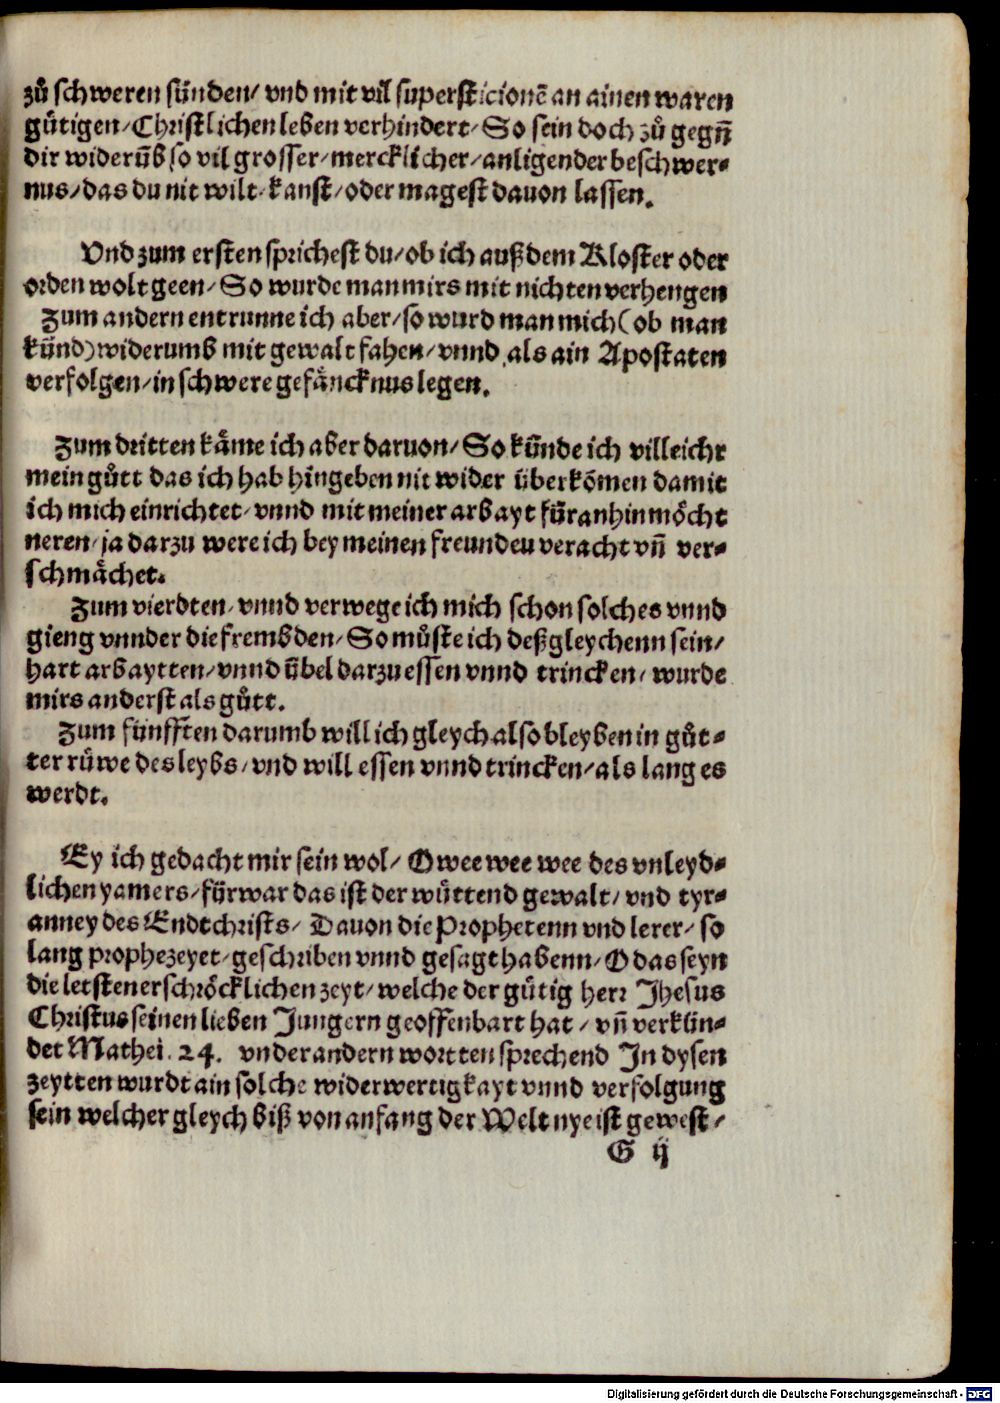 zů schweren sünden/ vnd mit vil supersticionē an ainen waren
gütigen/Christlichen leben verhindert/ So sein doch zů gegñ
dir widerūb so vil grosser/mercklicher/anligender beschwer⸗
nus/das du nit wilt/kanst/oder magest dauon lassen.
Vnd zum ersten sprichest du/ob ich auß dem Kloster oder
orden wolt geen/ So wurde man mirs mit nichten verhengen
Zum andern entrunne ich aber/so wurd man mich (ob man
künd) widerumb mit gewalt fahen/vnnd als ain Apostaten
verfolgen/in schwere gefäncknus legen.
Zum dritten käme ich aber daruon/ So künde ich villeicht
mein gůtt das ich hab hingeben nit wider überkōmen damit
ich mich einrichtet/vnnd mit meiner arbayt füranhin möcht
neren/ja darzu were ich bey meinen freunden veracht vñ ver⸗
schmächet.
Zum vierdten/vnnd verwege ich mich schon solches vnnd
gieng vnnder die frembden/ So můste ich deßgleychenn sein/
hart arbaytten/vnnd übel darzu essen vnnd trincken/ wurde
mirs anderst als gůtt.
Zum fünfften darumb will ich gleych also bleyben in gůt⸗
ter růwe des leybs/vnd will essen vnnd trincken/als lang es
werdt.
Ey ich gedacht mir sein wol/ O wee wee wee des vnleyd⸗
lichen yamers/fürwar das ist der wüttend gewalt/ vnd tyr⸗
anney des Endtchrists/ Dauon die Prophetenn vnd lerer/ so
lang prophezeyet/geschriben vnnd gesagt habenn/ O das seyn
die letsten erschröcklichen zeyt/welche der gütig herr Jhesus
Christus seinen lieben Jungern geoffenbart hat/ vñ verkün⸗
det Mathei. 24. vnder andern wortten sprechend In dysen
zeytten wurdt ain solche widerwertigkayt vnnd verfolgung
sein welcher gleych biß von anfang der Welt nye ist gewest/
G ij
Digitalisierung gefördert durch die Deutsche Forschungsgemeinschaft - DFG